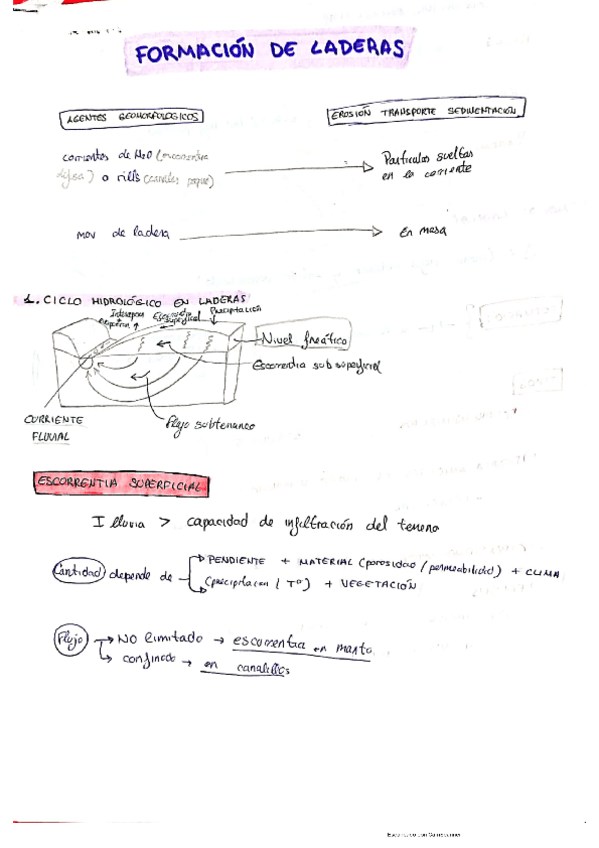 FORMACIÓN DE LADERAS
AGENTES GEOMORFOLOGICOS
EROSIÓN TRANSPORTE SEDIMENTACIÓN
corrientes de H2O (escorrentia
difusa) o rills (canales peque)
Particulas sueltas
en la corriente
mov de ladera
En masa
1. CICLO HIDROLÓGICO EN LADERAS
Escorrentia
superficial
Precipitación
Nivel freático
Escorrentia subsuperficial
CORRIENTE
FLUVIAL
Flujo subterraneo
ESCORRENTIA SUPERFICIAL
I lluvia > capacidad de infiltración del terreno
Cantidad depende de
PENDIENTE + MATERIAL (porosidad / permeabilidad) + CLIMA
(precipitacion / Tº) + VEGETACIÓN
Flujo
NO limitado → escorrentia en manto
confinado → en canalillos
Escaneado con CamScanner